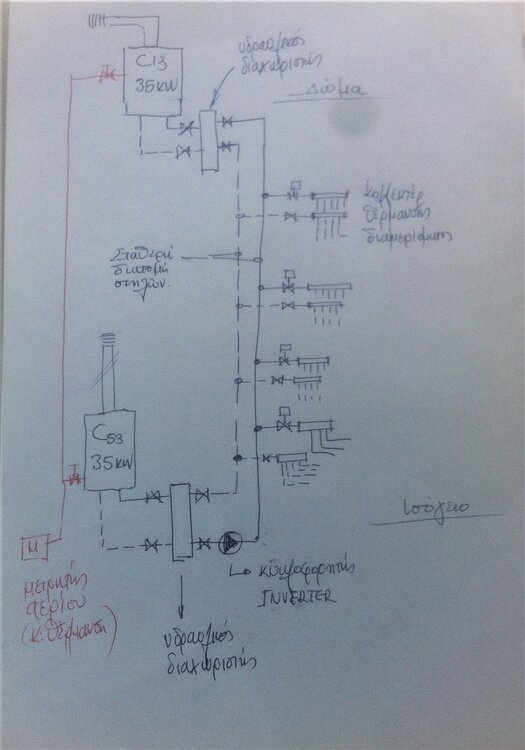 C13
35KW
υδραυλικός
διαχωριστής
Δώμα
Κολλεκτέρ
θέρμανσης
διαμερίσματος
Σταθερή
διατομή
στηλών.
C53
35KW
Ισόγειο
M
μετρητής
αερίου
(κ. θέρμανση)
κυκλοφορητής
INVERTER
υδραυλικός
διαχωριστής